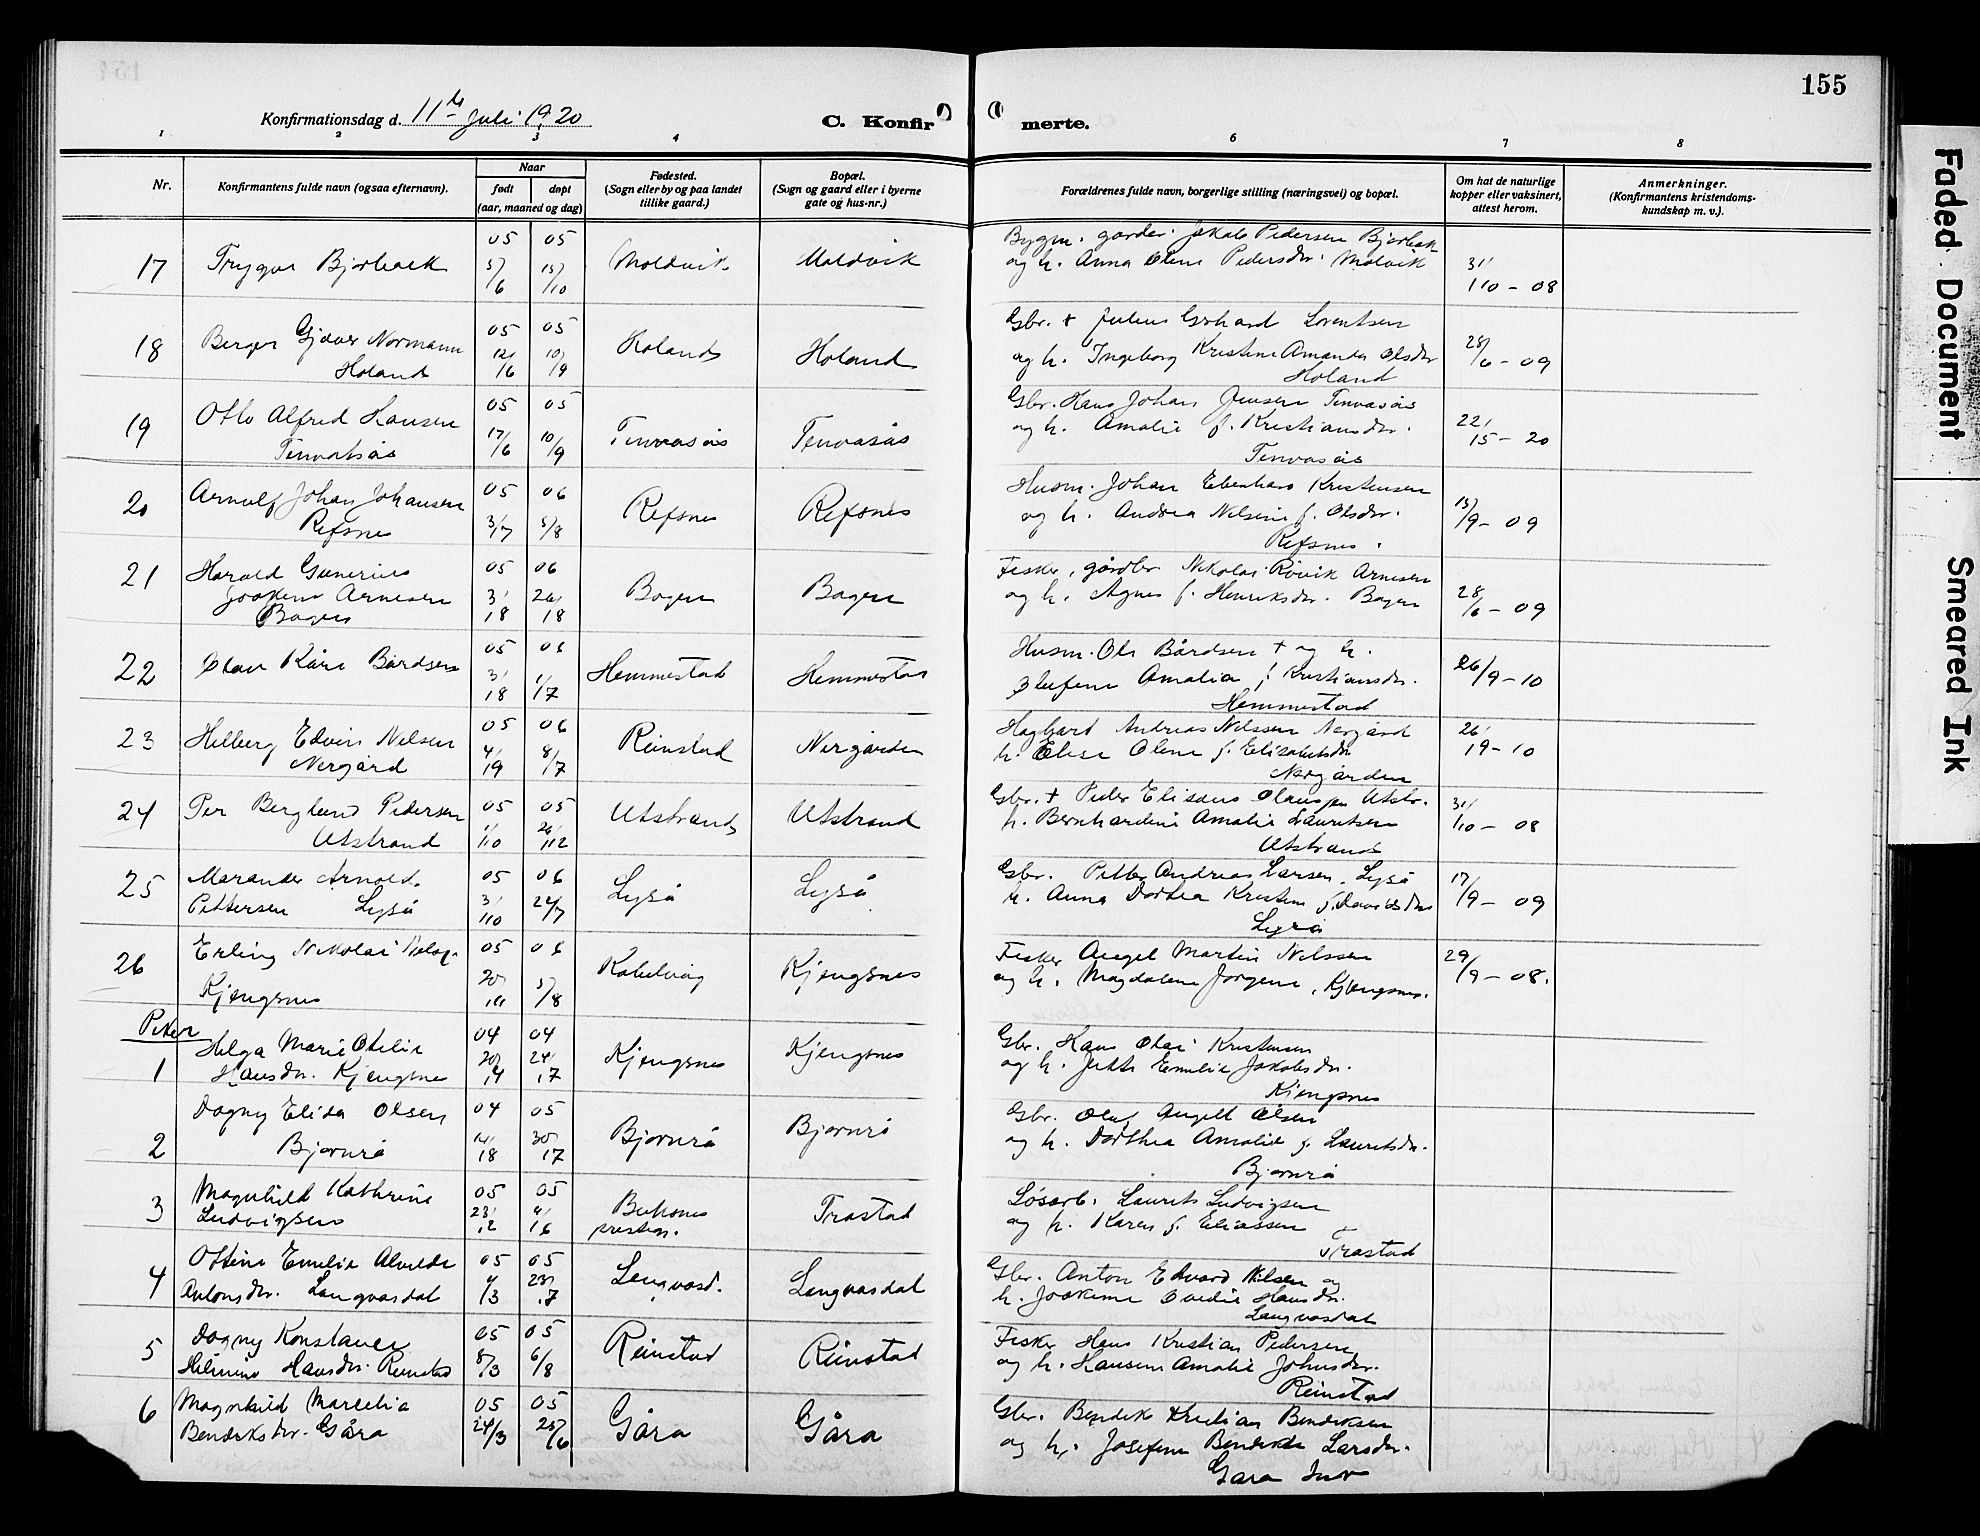 155
Konfirmationsdag d. 11te Juli 1920
C. Konfir
merte.
1 2 3 4 6 7 8
Nr.
Konfirmantens fulde navn (ogsaa efternavn).
Naar
født
døpt
(aar, maaned og dag)
Fødested.
(Sogn eller by og paa landet
tillike gaard.)
Bopæl.
(Sogn og gaard eller i byerne
gate og hus-nr.)
Forældrenes fulde navn, borgerlige stilling (næringsvei) og bopæl.
Om hat de naturlige
kopper eller vaksinert,
attest herom.
Anmerkninger.
(Konfirmantens kristendoms-
kundskap m. v.).
17 Trygve Bjørbæk 05 5/6 05 15/10 Moldvik Moldvik
Bygm. gårdbr. Jakob Pedersen Bjørbæk
og h. Anna Oline Pedersdr. Molvik
31/10 - 08
18 Berger Gjæver Normann
Holand
05 12/6 05 10/9 Holand Holand
Gbr. + Julius Gerhard Lorentsen
og h. Ingeborg Kristine Amanda Olsdr
Holand
28/6 - 09
19 Otto Alfred Hansen
Tenvatsås
05 17/6 05 10/9 Tenvasås Tenvasås
Gbr. Hans Johan Jensen Tenvasås
og h. Amalie f. Kristiansdr.
Tenvasås
22/5 - 20
20 Arnulf Johan Johansen
Refsnes
05 3/7 06 5/8 Refsnes Refsnes
Husm. Johan Eberhard Kristensen
og h. Andrea Nilsine f. Olsdr.
Refsnes.
15/9 - 09
21 Harald Gunerius
Joakim Arnesen
Bogen
05 3/8 06 26/8 Bogen Bogen
Fisker, gårdbr. Nikolai Røvik Arnesen
og h. Agnes f. Henriksdr. Bogen
28/6 - 09
22 Olav Kåre Bårdsen 05 3/8 06 1/7 Hemmestad Hemmestad
Husm. Ole Bårdsen + og h.
Olufine Amalia f. Kristiansdr.
Hemmestad
26/9 - 10
23 Hilberg Edvin Nilsen
Nergård
05 4/9 06 8/7 Reinstad Nergården
Hagbart Andreas Nilssen Nergård
h. Elise Oline f. Elisabetsdr
Nergården
26/9 - 10
24 Per Berglund Pedersen
Utstrand
05 1/10 05 26/12 Utstrand Utstrand
Gbr. + Peder Elisæus Utstr.
h. Bernhardine Amalie Lauritsen
Utstrand
31/10 - 08
25 Marander Arnold
Pettersen Lyså
05 3/10 06 22/7 Lyså Lyså
Gbr. Petter Andreas Larsen, Lyså
h. Anna Dorthea Kristine f. Davidsdr
Lyså
17/9 - 09
26 Erling Nikolai Nilsen
Kjengsnes
05 06 5/8 Kabelvåg Kjengsnes
Fisker Angel Martin Nilssen
og h. Magdalene Jørgine, Kjengsnes.
29/9 - 08.
Piker
1 Helga Marie Otelie
Hansdr. Kjengsnes
04 20/4 04 24/7 Kjengsnes Kjengsnes
Gbr. Hans Olai Kristensen
og h. Jette Emelie Jakobsdr.
Kjengsnes
2 Dagny Elida Olsen
Bjørnrå
04 14/8 05 30/7 Bjørnrå Bjørnrå
Gbr. Olaf Angell Olsen
og h. Dorthea Amalie f. Lauritsdr.
Bjørnrå
3 Magnhild Kathrine
Ludvigsen
05 23/2 05 4/6 Buksnes
prestegj.
Trastad
Løsarb. Laurits Ludvigsen
og h. Karen f. Eliassen
Trastad
4 Ottine Emelie Alvilde
Antonsdr. Langvasdal
05 4/3 05 23/7 Langvasd. Langvasdal
Gbr. Anton Edvard Nilsen og
h. Joakime Ovedie Hansdr.
Langvasdal
5 Dagny Konstance
Helmine Hansdr. Reinstad
05 8/3 05 6/8 Reinstad Reinstad
Fisker Hans Kristian Pedersen
og h. Hansine Amalie Johnsdr.
Reinstad
6 Magnhild Marselie
Bendiksdr. Gåra
05 24/3 05 25/6 Gåra Gåra
Gbr. Bendik Kristian Bendiksen
og h. Josefine Bendikte Larsdr.
Gåra
Faded Document
Smeared Ink